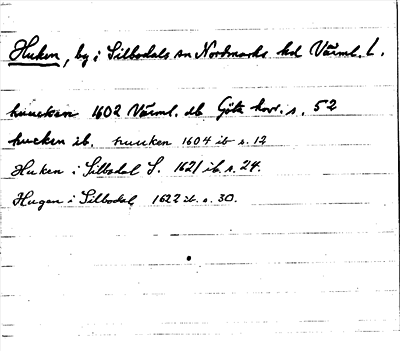 Huken, by i Silbodals sn Nordmarks hd Värml. L.
huucken 1602 Värml. db Göta hovr. s. 52
hucken ib. huucken 1604 ib s. 12
Huken i Silbodal S. 1621 ib. s. 24.
Hugen i Silbodal 1622 ib. s. 30.